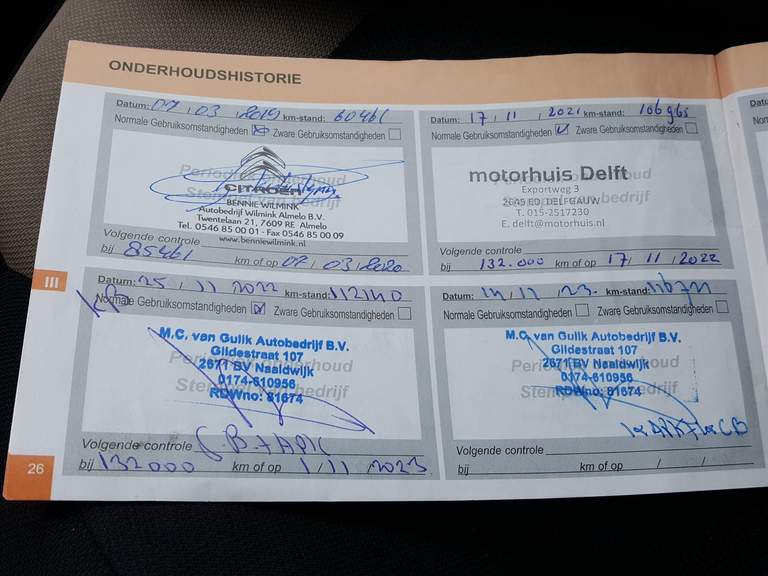 ONDERHOUDSHISTORIE
Datum: 07 / 03 / 2019 km-stand: 60461
Normale Gebruiksomstandigheden Zware Gebruiksomstandigheden
Periodiek onderhoud
Stempel van bedrijf
CITROËN
BENNIE WILMINK
Autobedrijf Wilmink Almelo B.V.
Twentelaan 21, 7609 RE Almelo
Tel. 0546 85 00 01 - Fax 0546 85 00 09
www.benniewilmink.nl
Volgende controle
bij 85461 km of op 07 / 03 / 2020
Datum: 17 / 11 / 2021 km-stand: 106965
Normale Gebruiksomstandigheden Zware Gebruiksomstandigheden
motorhuis Delft
Exportweg 3
2645 ED, DELFGAUW
T. 015-2517230
E. delft@motorhuis.nl
Volgende controle
bij 132.000 km of op 17 / 11 / 2022
III
Datum: 25 / 11 / 2022 km-stand: 112140
Normale Gebruiksomstandigheden Zware Gebruiksomstandigheden
M.C. van Gulik Autobedrijf B.V.
Gildestraat 107
2671 BV Naaldwijk
0174-610956
RDWno: 81674
Periodiek onderhoud
Stempel van bedrijf
Volgende controle GB + APK
bij 132000 km of op 1 / 11 / 2023
Datum: 14 / 11 / 23 km-stand:
Normale Gebruiksomstandigheden Zware Gebruiksomstandigheden
M.C. van Gulik Autobedrijf B.V.
Gildestraat 107
2671 BV Naaldwijk
0174-610956
RDWno: 81674
Periodiek onderhoud
Stempel van bedrijf
Volgende controle
bij km of op / /
26